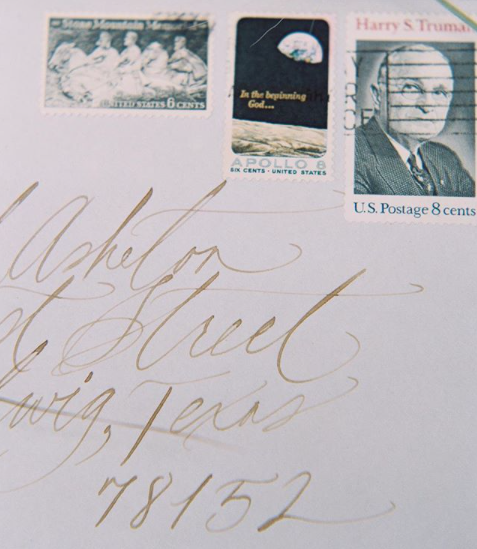 Stone Mountain Memorial
UNITED STATES 6 CENTS
In the beginning
God...
APOLLO 8
SIX CENTS · UNITED STATES
Harry S. Truman
U.S. Postage 8 cents
Ashelon
Street
wig, Texas
78152